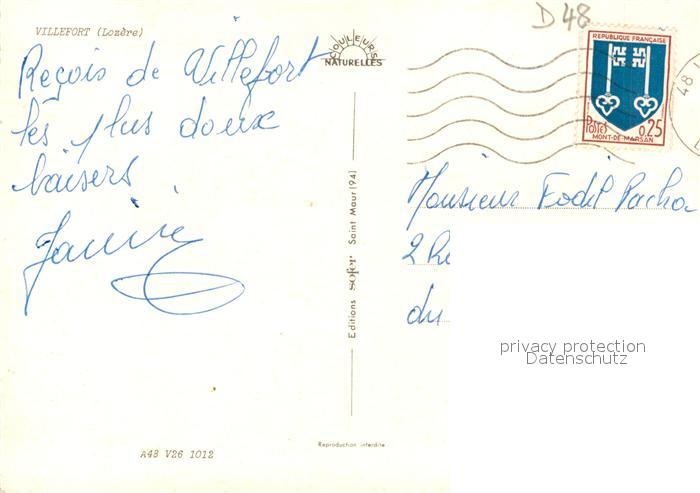 VILLEFORT (Lozère)
D48
COULEURS
NATURELLES
REPUBLIQUE FRANÇAISE
Postes 0,25
MONT-DE-MARSAN
48
Reçois de Villefort
les plus doux
baisers
Janine
Editions sofer Saint Maur (94)
Monsieur Fodil Pacha
2
du
privacy protection
Datenschutz
Reproduction interdite
A48 V26 1012